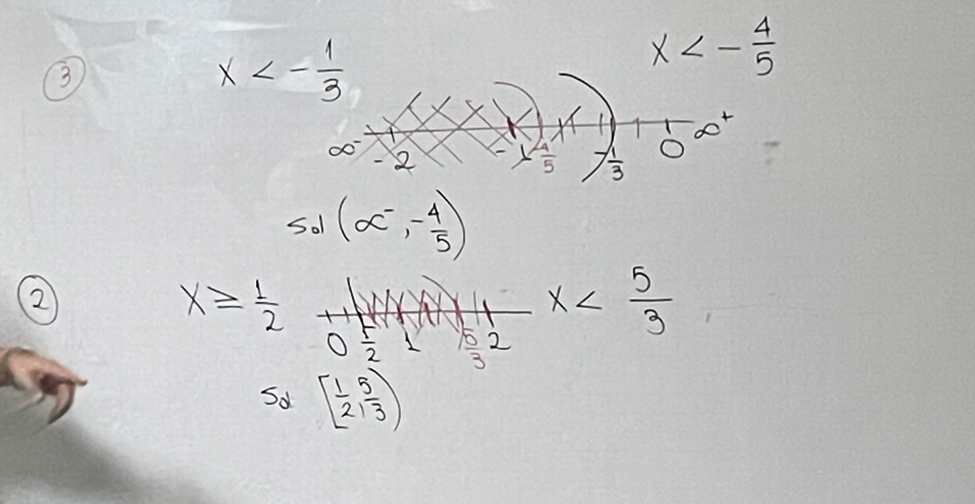 ③ x < -1/3 x < -4/5
∞⁻ -2 -1 -4/5 -1/3 0 ∞⁺
sol (∞⁻, -4/5)
② x ≥ 1/2 x < 5/3
0 1/2 1 5/3 2
Sol [1/2, 5/3)